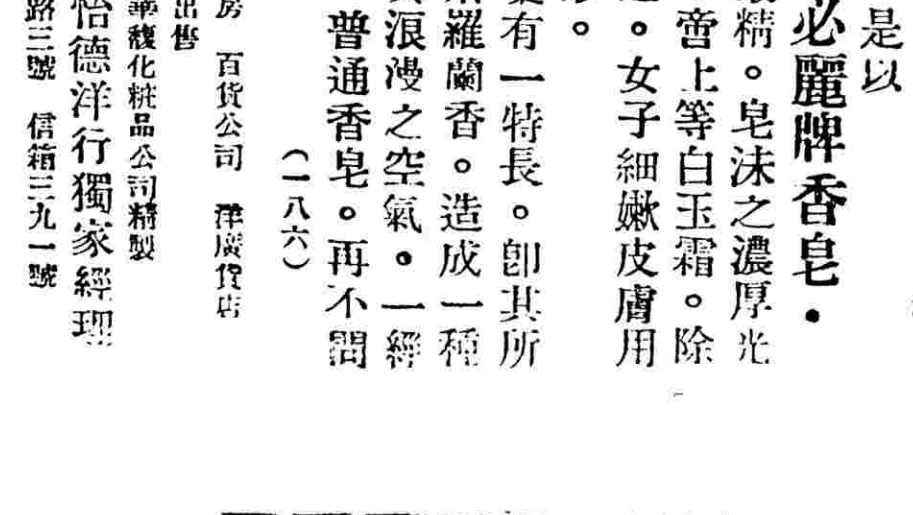 是以
必麗牌香皂．
精。皂沫之濃厚光
啻上等白玉霜。除
。女子細嫩皮膚用
。
有一特長。卽其所
羅蘭香。造成一種
浪漫之空氣。一經
普通香皂。再不問
（一八六）
房　百貨公司　洋廣貨店
出售
馥化粧品公司精製
怡德洋行獨家經理
路三號　信箱三九一號